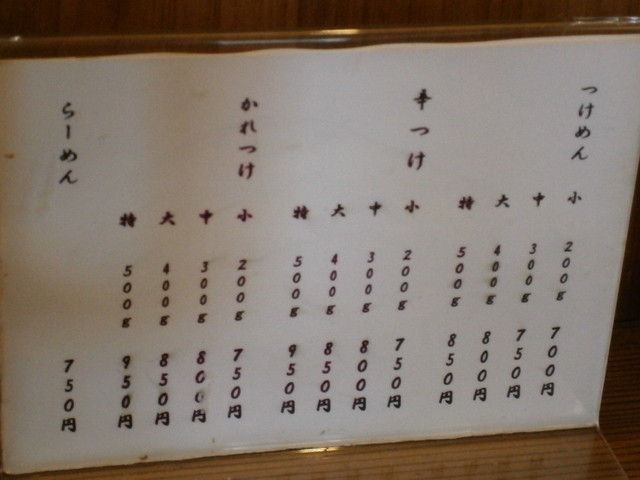 つけめん
小 200g 700円
中 300g 750円
大 400g 800円
特 500g 850円
辛つけ
小 200g 750円
中 300g 800円
大 400g 850円
特 500g 950円
かれつけ
小 200g 750円
中 300g 800円
大 400g 850円
特 500g 950円
らーめん
750円